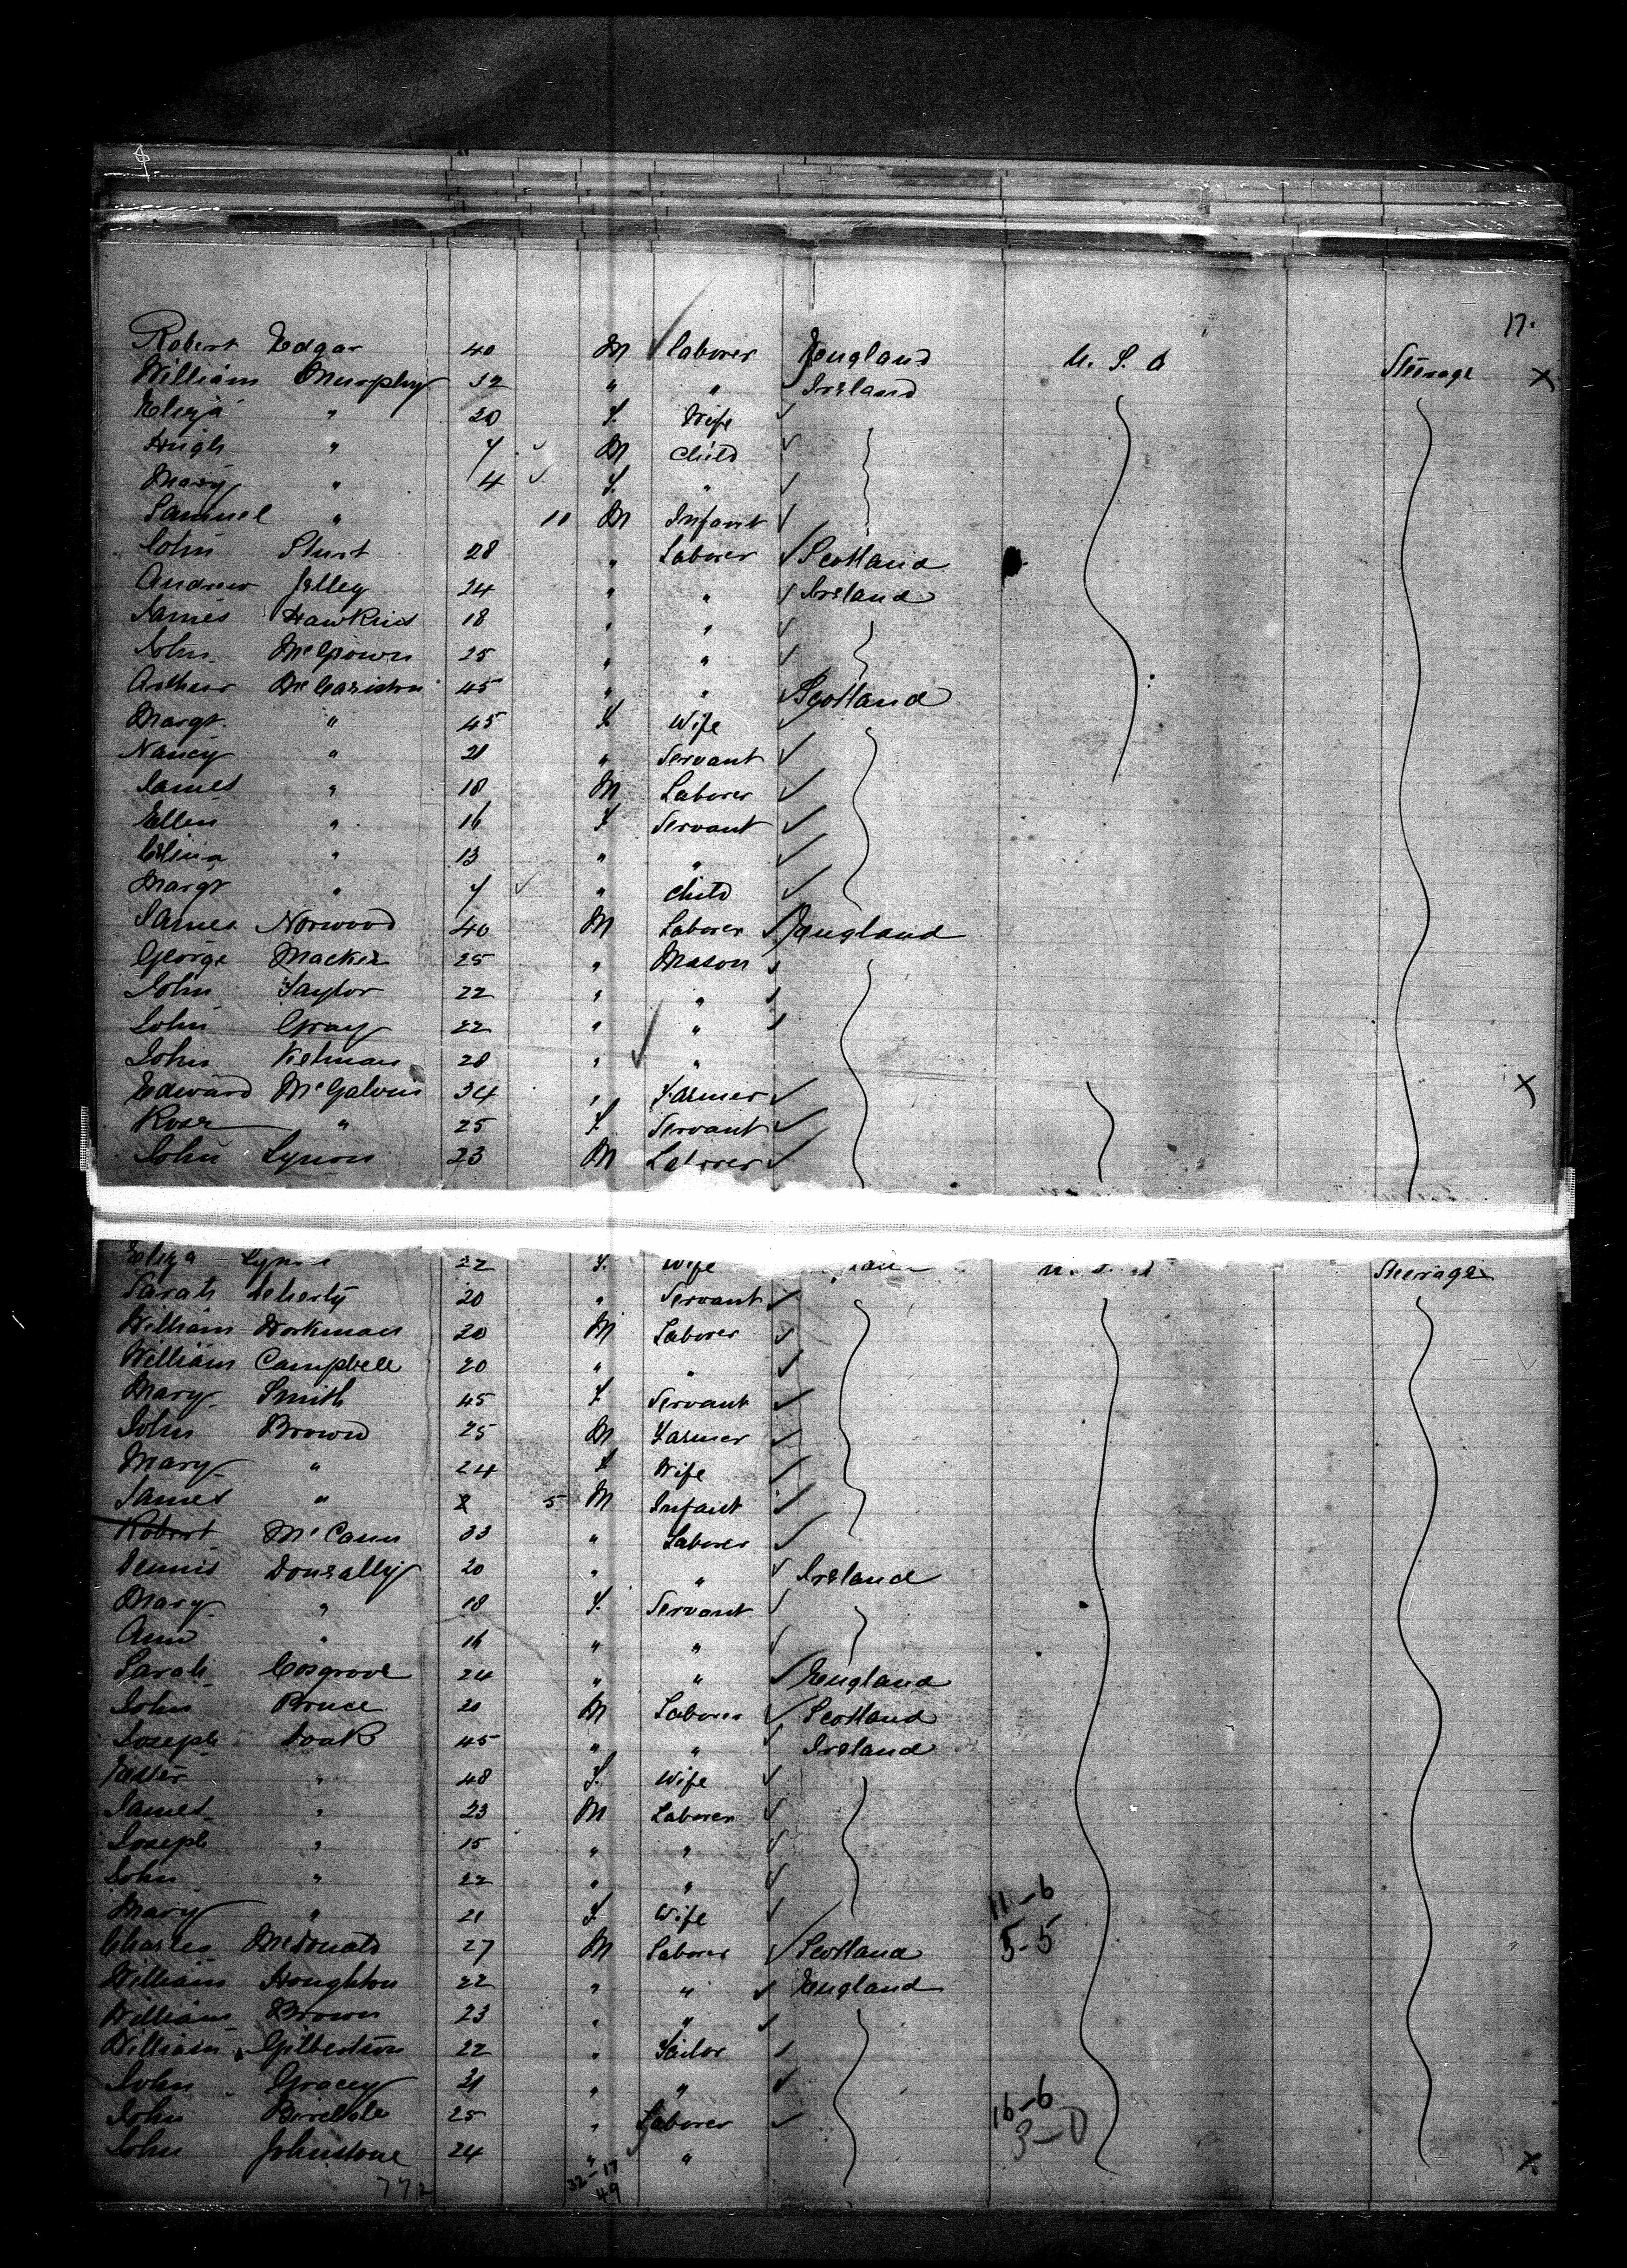 17.
Robert Edgar 40 M Laborer England U. S. A Steerage X
William Murphy 32 " " Ireland
Eliza " 20 F. Wife
Hugh " 7 M Child
Mary " 4 F. "
Samuel " 11 M Infant
John 28 " Laborer Scotland
Andrew Jelley 24 " " Ireland
James Hawkins 18 " "
John McGown 25 " "
Arthur 45 " " Scotland
Margt. " 45 F. Wife
Nancy " 21 " Servant
James " 18 M Laborer
Ellen " 16 F Servant
" 13 " "
Margt " 7 " Child
James Norwood 40 M Laborer England
George Mackie 25 " Mason
John Taylor 22 " "
John Gray 22 " "
John Kelman 28 " "
Edward McGalvin 34 " Farmer X
Rose " 25 F. Servant
John Lynon 23 M Laborer
Eliza 22 F. Wife U. S. A Steerage
Sarah Deherty 20 " Servant
William Workman 20 M Laborer
William Campbell 20 " "
Mary Smith 45 F Servant
John Brown 25 M Farmer
Mary " 24 F Wife
James " 5 M Infant
Robert McCann 33 " Laborer
Dennis Donnally 20 " " Ireland
Mary " 18 F. Servant
Ann " 16 " "
Sarah Cosgrove 24 " " England
John Bruce 20 M Laborer Scotland
Joseph Doak 45 " " Ireland
Ester " 48 F. Wife
James " 23 M Laborer
Joseph " 15 " "
John " 22 " "
Mary " 21 F Wife 11-6
Charles McDonald 27 M Laborer Scotland 5-5
William Houghton 22 " " England
William Brown 23 " "
William Gilbertson 22 " Tailor
John Gracey 21 " "
John 25 " Laborer 16-6
3-0
John Johnstone 24 " " X
772 32-17
49